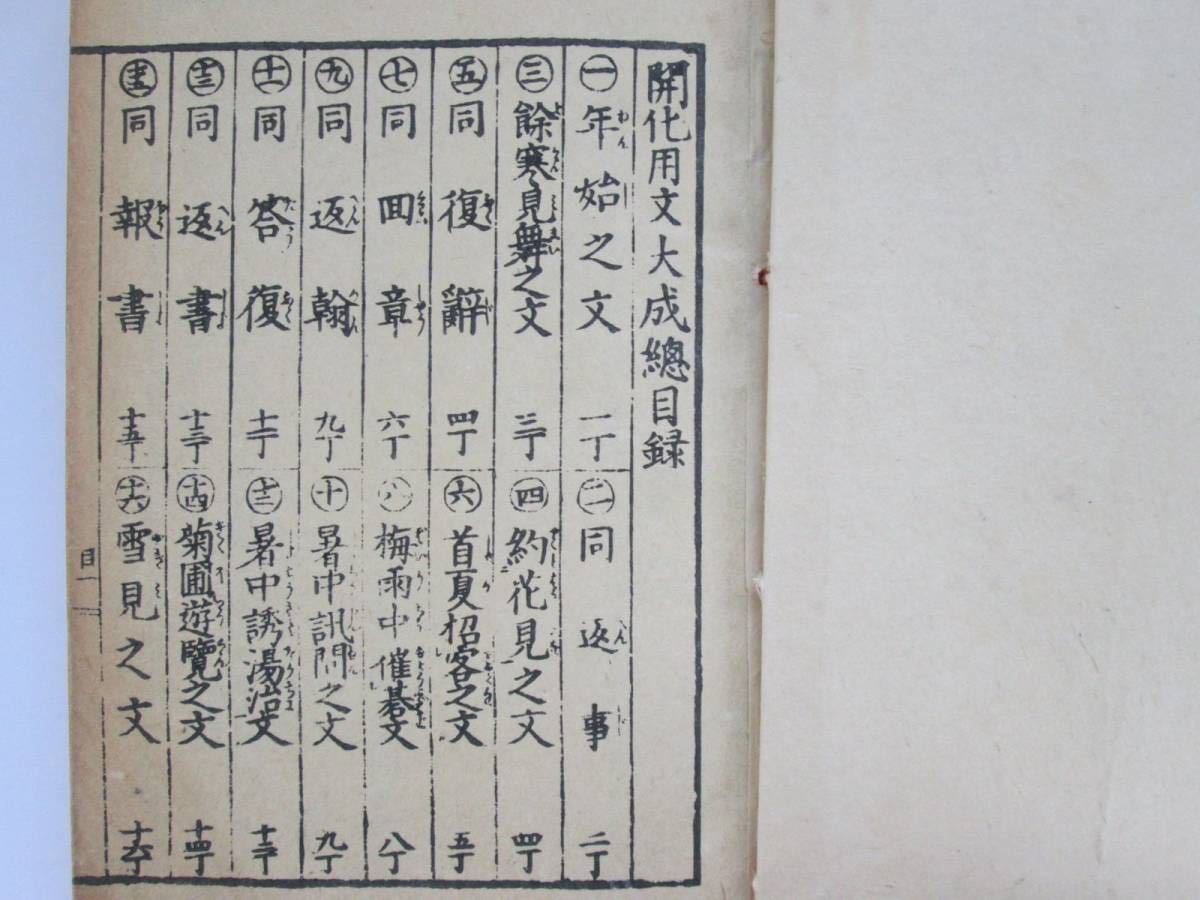 開化用文大成總目録
㊀年始之文 一丁
㊁同返事 二丁
㊂餘寒見舞之文 三丁
㊃約花見之文 四丁
㊄同復辭 四丁
㊅首夏招客之文 五丁
㊆同回章 六丁
㊇梅雨中催碁文 八丁
㊈同返翰 九丁
㊉暑中訊問之文 九丁
十一同答復 十一丁
十二暑中誘湯治文 十二丁
十三同返書 十三丁
十四菊圃遊覽之文 十四丁
十五同報書 十五丁
十六雪見之文 十六丁
目一